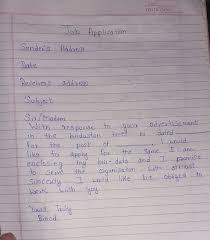 Job Application
Sender's Address
Date
Receiver's address
Subject
Sir/Madam
With response to your advertisement
in the hindustan times dated
for the post of ....... I would
like to apply for the same. I am
enclosing my bio-data and I promise
to serve the organisation with utmost
sincerity. I would like be obliged to
work with you.
Yours Truly